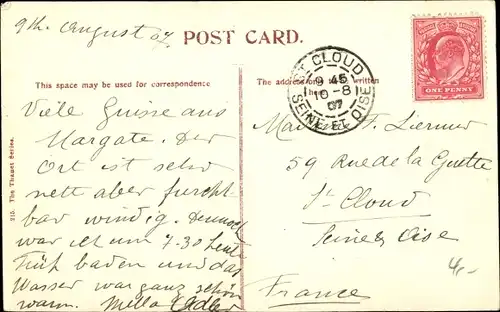 9th August 07.
POST CARD.
This space may be used for correspondence
The address to be written
ST CLOUD
9 45
10 - 8
07
SEINE ET OISE
ONE PENNY
Viele Grüsse aus
Margate. Der
Ort ist sehr
nett aber furcht
bar windig. Dennoch
war ich um 7-30 heute
Früh baden und das
Wasser war ganz schön
warm. Mella Adler
210. The Thanet Series.
59 Rue de la Guette
St Cloud
Seine & Oise
France
4,-